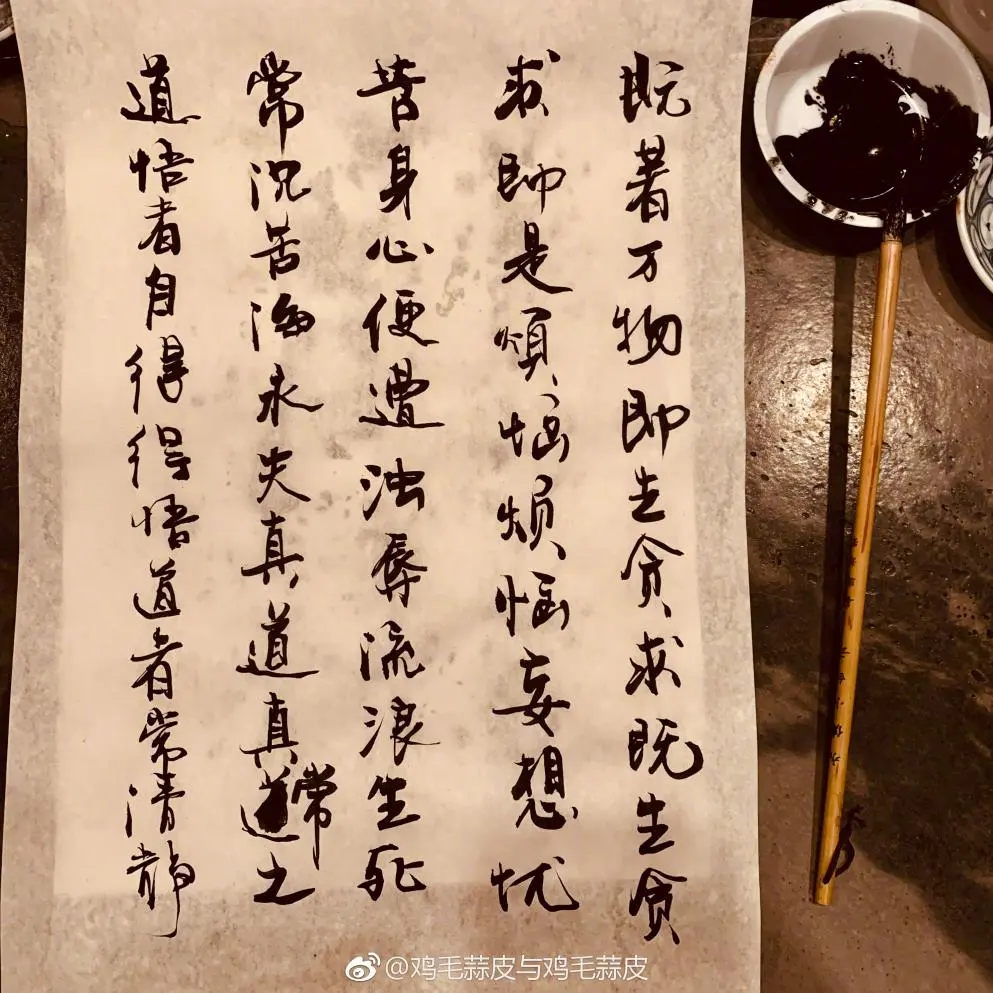 既着万物即生贪求既生贪
求即是烦恼烦恼妄想忧
苦身心便遭浊辱流浪生死
常沉苦海永失真道真常之
道悟者自得得悟道者常清静
@鸡毛蒜皮与鸡毛蒜皮